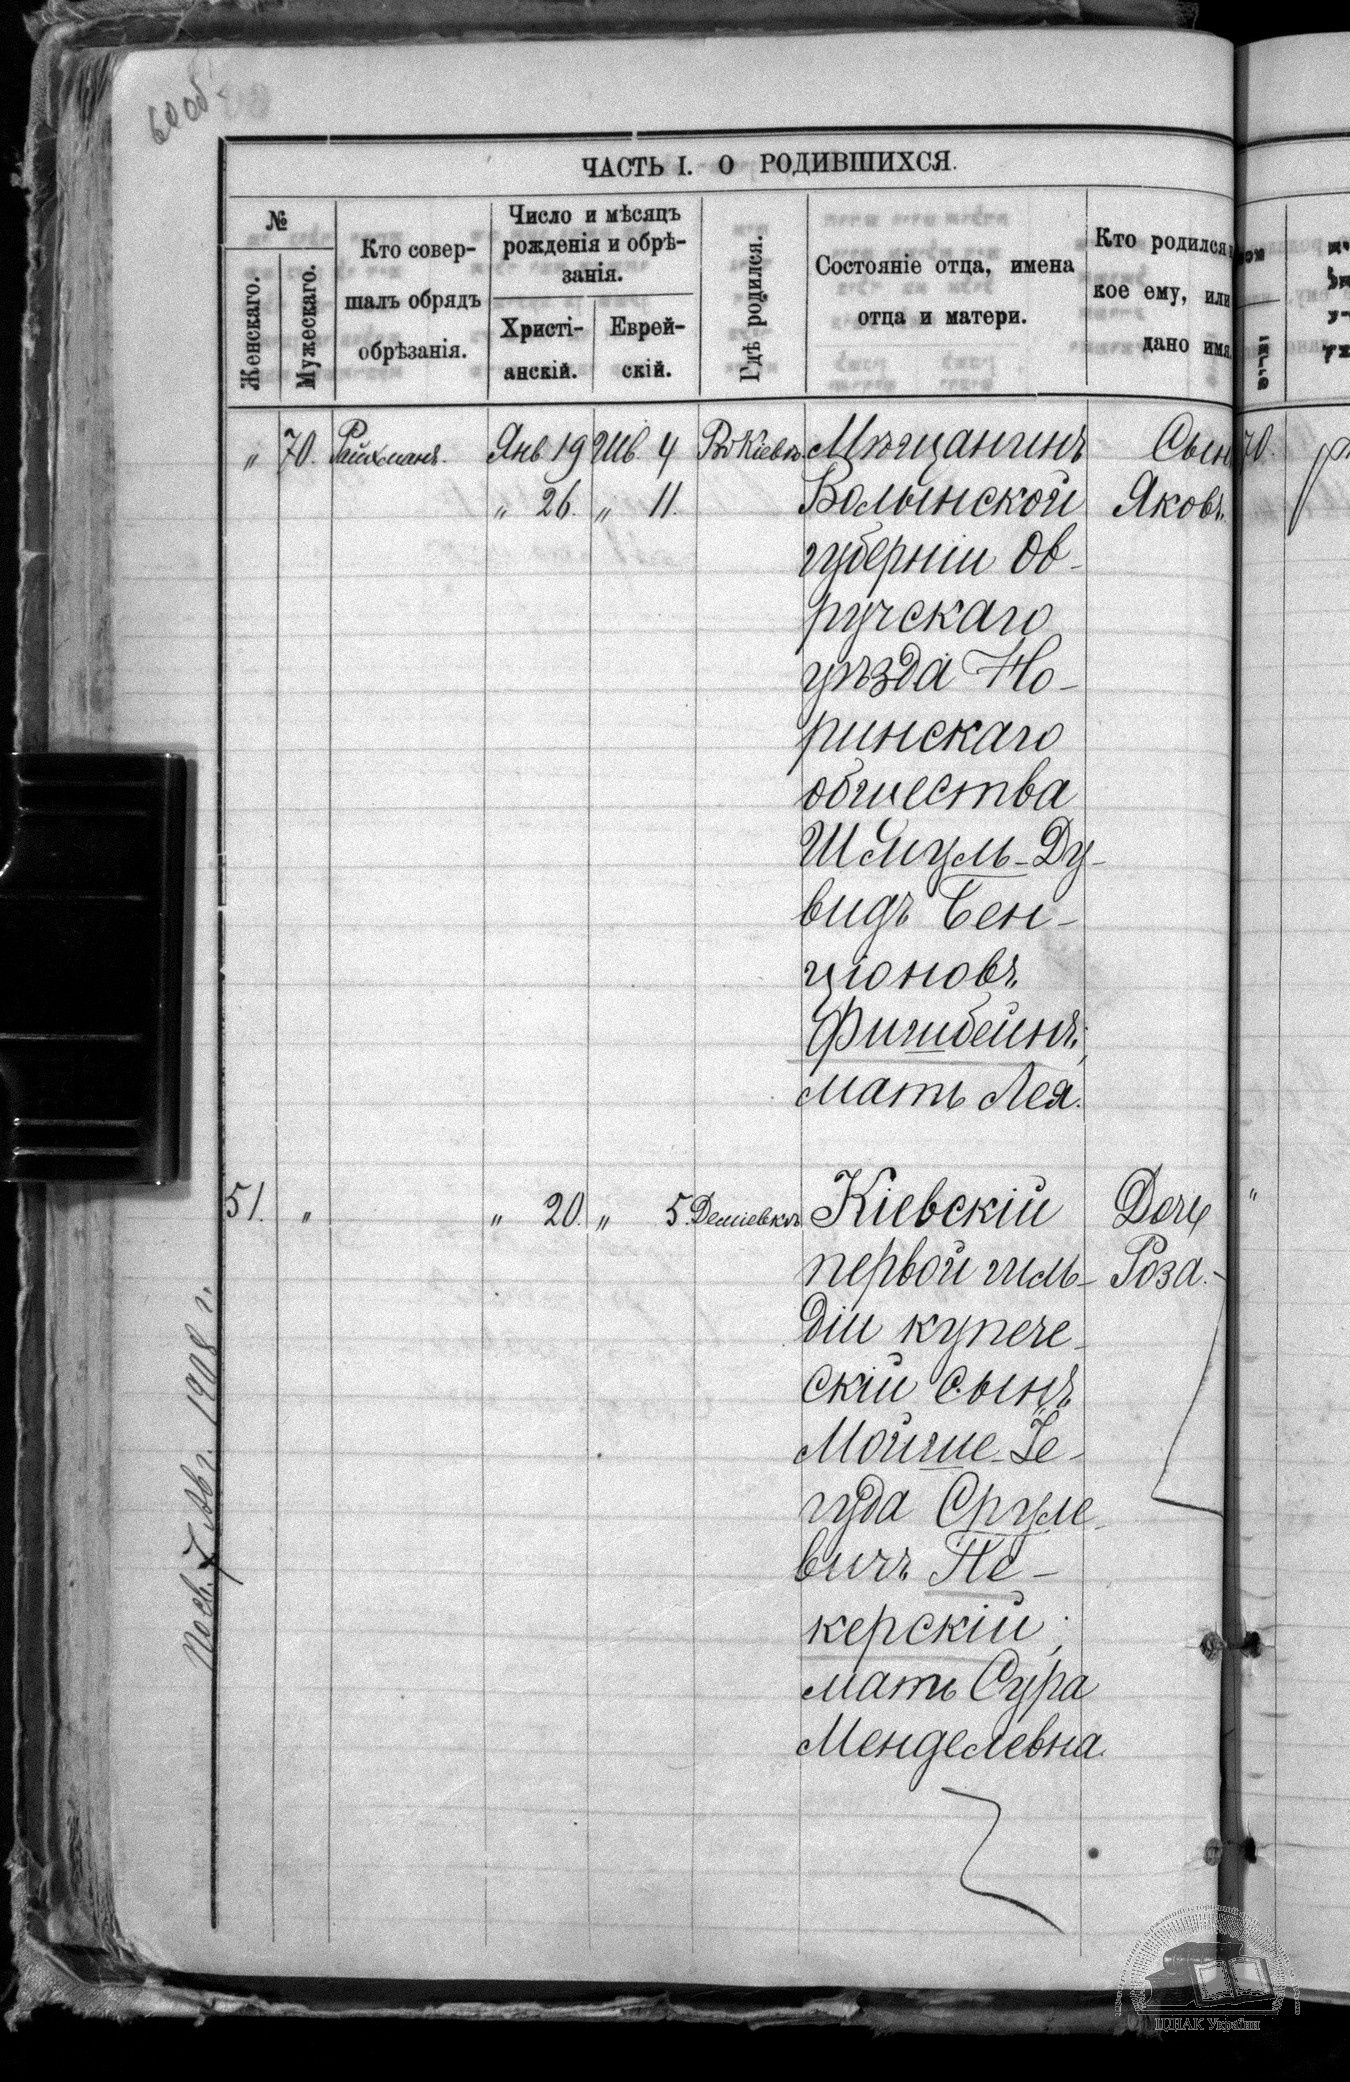 60 об.
ЧАСТЬ I. О РОДИВШИХСЯ.
№
Женскаго.
Мужескаго.
Кто совер-
шалъ обрядъ
обрѣзанія.
Число и мѣсяцъ
рожденія и обрѣ-
занія.
Христі-
анскій.
Еврей-
скій.
Гдѣ родился.
Состояніе отца, имена
отца и матери.
Кто родился и
кое ему, или
дано имя.
„ 70. Райхманъ. Янв 19 Шв. 4 Въ Кіевѣ Мѣщанинъ Сынъ 70.
„ 26. „ 11. Волынской Яковъ.
губерніи Ов-
ручскаго
уѣзда Но-
ринскаго
общества
Шмуль-Ду-
видъ Бен-
ціоновъ
Фишбейнъ;
мать Лея.
51. „ „ 20. „ 5. Деміевкѣ Кіевскій Дочь „
первой гиль- Роза.
діи купече-
скій сынъ
Мойше-Іе-
гуда Сруле-
вичъ Пе-
керскій;
мать Сура
Менделевна.
7 Авг. 1908 г.
ЦДІАК України